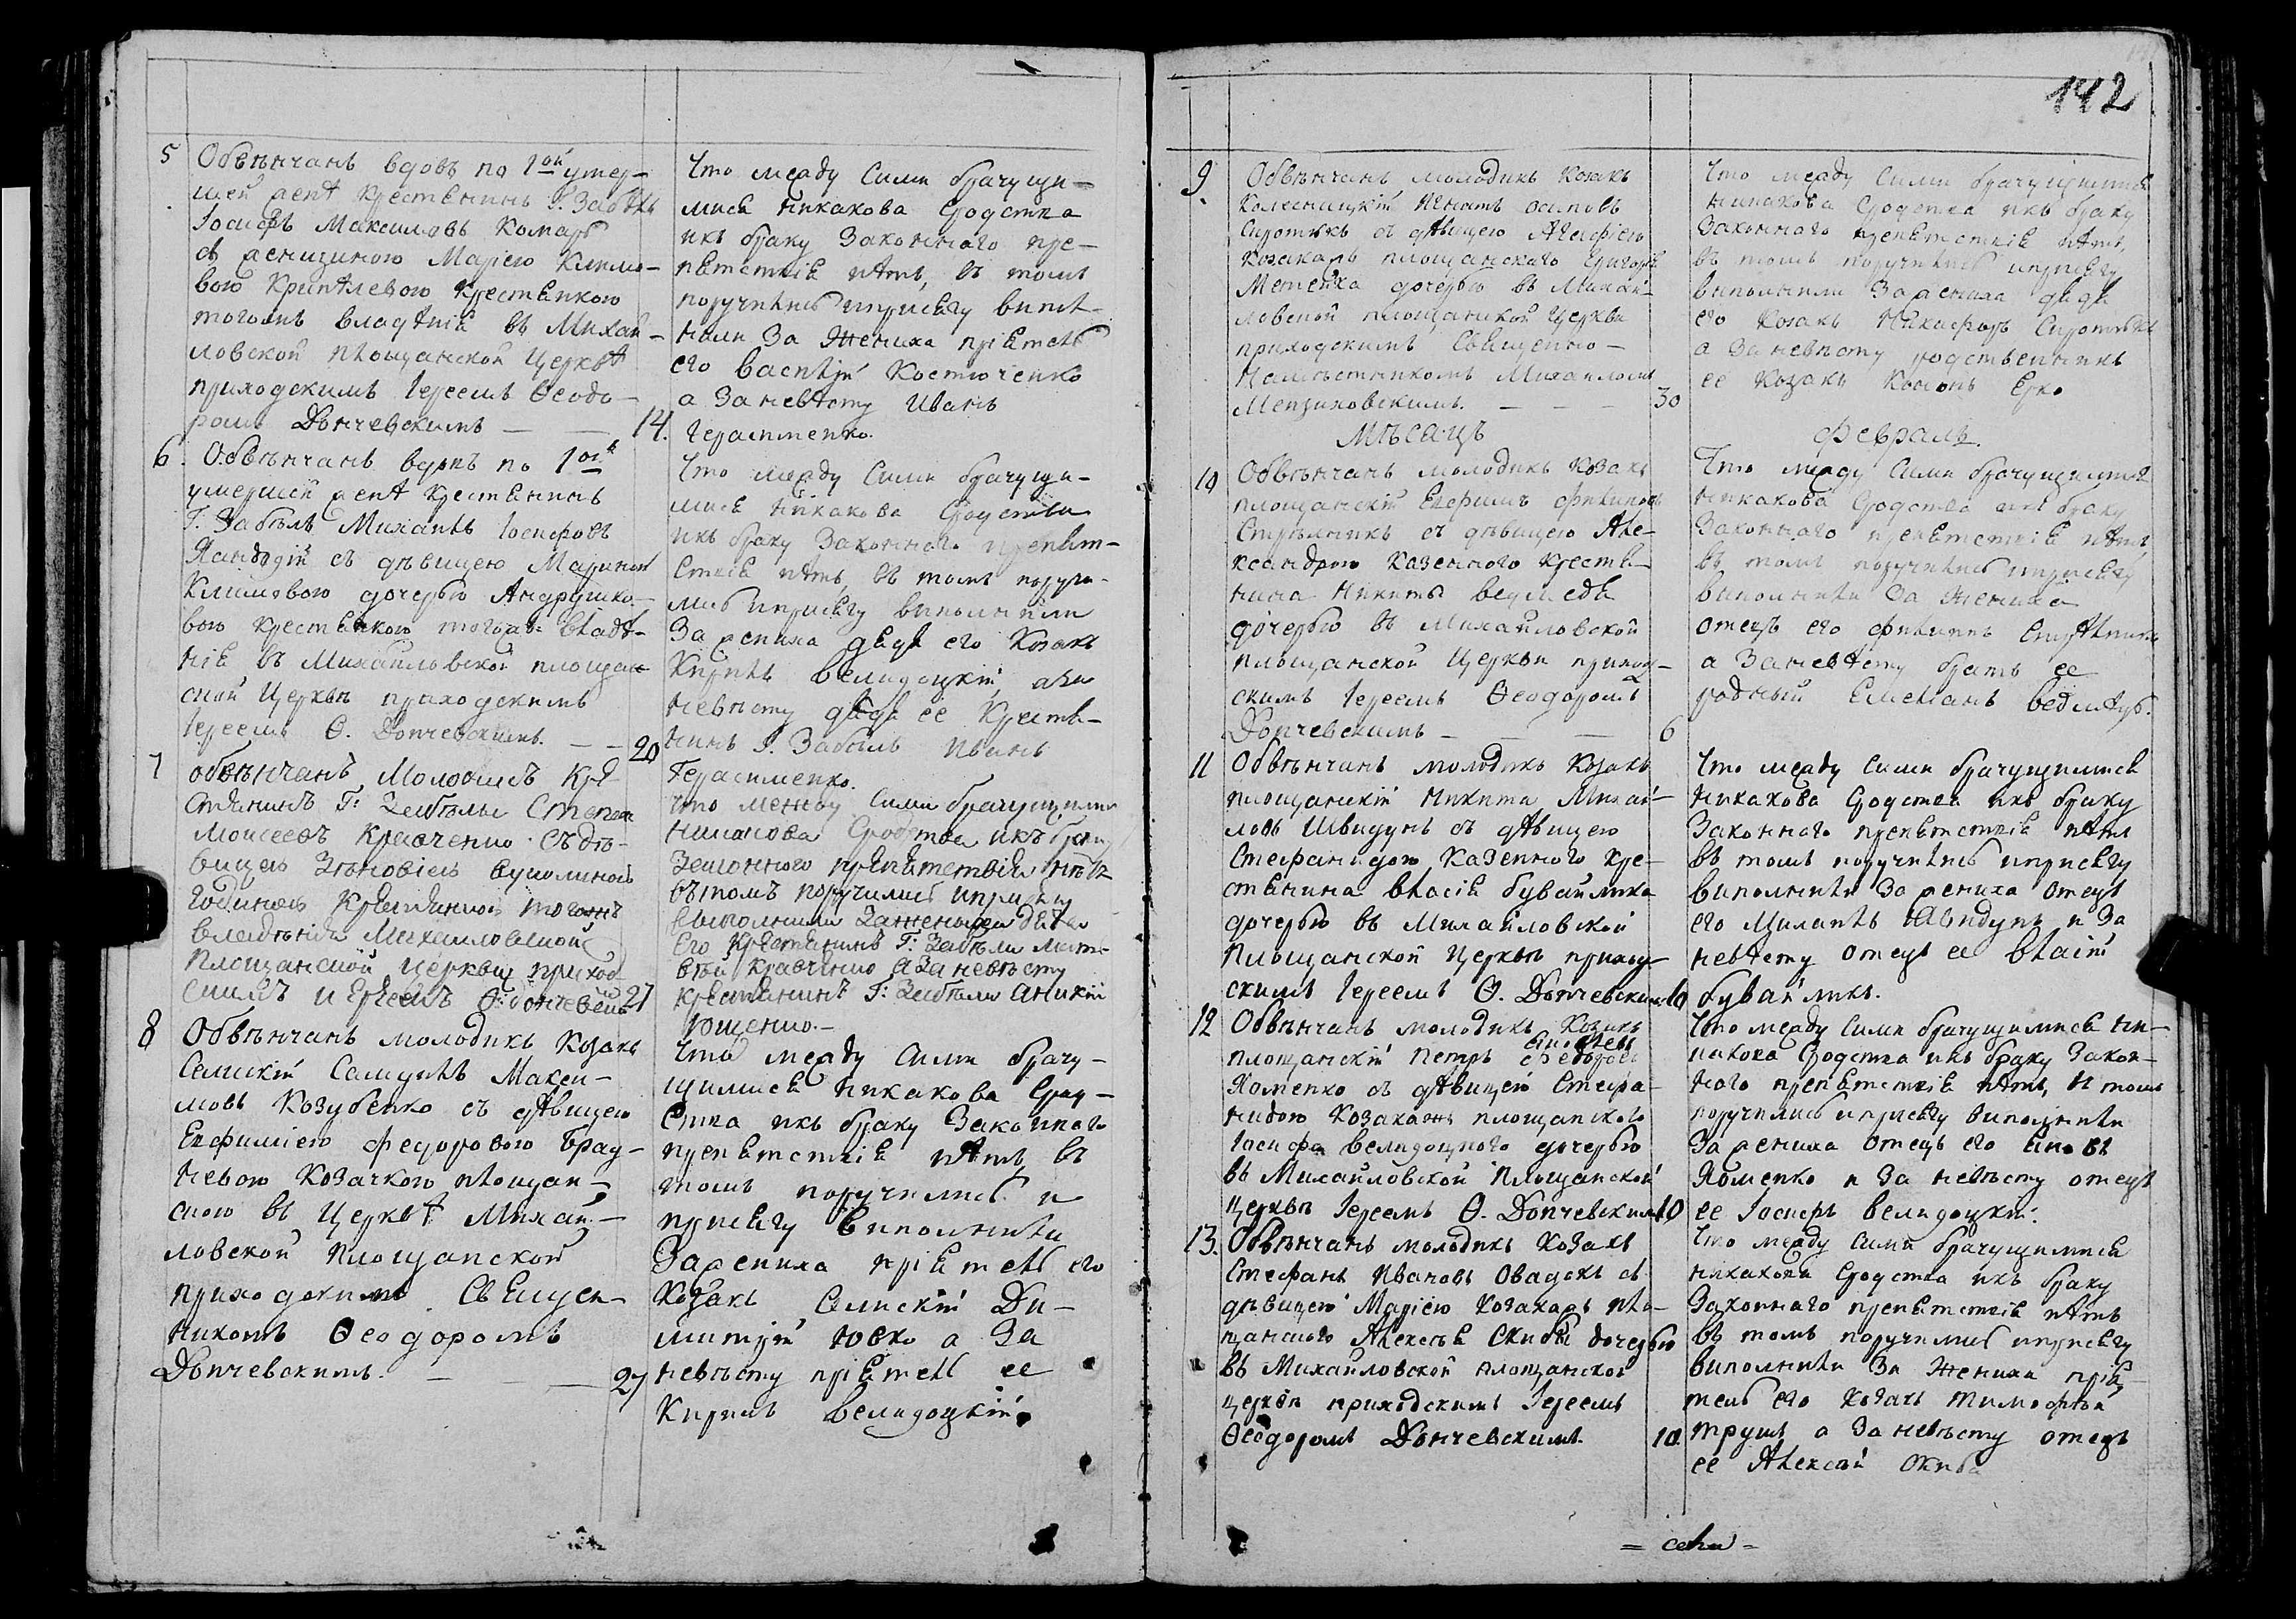 142
5 Обвѣнчанъ вдовъ по 1ой умер-
шей женѣ крестьянинъ Г. Забѣлы
Іосифъ Максимовъ Комаръ
съ женщиною Маріею Климо-
вою крестьянкою
тогожъ владѣнія въ Михай-
ловской площанской церквѣ
приходскимъ Іереемъ Ѳеодо-
ромъ Дончевскимъ — — 14.
Что между сими брачущи-
мися никакова сродства
икъ браку законнаго пре-
пятствія нѣтъ, въ томъ
поручились иприсягу випол-
нили за жениха пріятель
его Василій Костюченко
а заневѣсту Иванъ
Герасименко.
6. Обвѣнчанъ вдовъ по 1ой
умершей женѣ крестьянинъ
Г. Забѣлы Михаилъ Іосифовъ
съ дѣвицею Мариною
Климовою дочерью Андрушко-
вою крестьянкою тогожъ владѣ-
нія въ Михайловской площан-
ской церквѣ приходскимъ
Іереемъ Ѳ. Дончевскимъ. — — 20
Что между сими брачущи-
мися никакова сродства
икъ браку законнаго препят-
ствія нѣтъ, въ томъ поручи-
лись иприсягу виполнили
за жениха дядя его козакъ
Кирилъ Велидоцкій, аза
невѣсту дядя ее крестья-
нинъ Г. Забѣлы Иванъ
Герасименко.
7 Обвѣнчанъ молодикъ кре-
стянинъ Г: Забѣлы Степанъ
Моисеевъ Кравченко съдѣ-
вицею Зѣновіею
крестянкою тогожъ
владѣнія Михайловской
площанской церквы приход-
скимъ иереемъ Ѳ: Дончевскимъ 21
что между сими брачущимися
никакова сродства икъ браку
законного препятствія нѣтъ
въ томъ поручились иприсягу
выполнили зажениха дядя
его крестянинъ Г: Забѣлы Мат-
вѣй Кравченко азаневѣсту
крестянинъ Г: Забѣлы Аникій
Ющенко.—
8 Обвѣнчанъ молодикъ козакъ
Самуилъ Макси-
мовъ Козубенко съ дѣвицею
Евфиміею Федоровою
козачкою площан-
ською въ церквѣ Михай-
ловской площанской
приходскимъ священ-
никомъ Ѳеодоромъ
Дончевскимъ. — — — 27
Что между сими брачу-
щимися никакова срод-
ства икъ браку законнаго
препятствія нѣтъ, въ
томъ поручились и
присягу виполнили
зажениха пріятель его
козакъ Ди-
митрій Ювко а за
невѣсту пріятель ее
Кирилъ Велидоцкій.
9. Обвѣнчанъ молодикъ козакъ
Игнатъ Осиповъ
Сиротюкъ съ дѣвицею Агафіею
козака площанского Григорія
дочерью въ Михай-
ловской площанской церкви
приходскимъ священно-
намѣстникомъ Михаиломъ
Мензиховскимъ. — — — 30
Что между сими брачущимися
никакова сродства икъ браку
законнаго препятствія нѣтъ,
въ томъ поручились иприсягу
виполнили зажениха дядя
его козакъ Никифоръ Сиротюкъ
а заневѣсту родственникъ
ее козакъ Кононъ Ерко
Мѣсяцъ Февраль.
10 Обвѣнчанъ молодикъ козакъ
площанскій Евфимъ Филиповъ
Стрѣльникъ съ дѣвицею Але-
ксандрою казенного крестья-
нина Никиты Ведмедя
дочерью въ Михайловской
площанской церкви приход-
скимъ Іереемъ Ѳеодоромъ
Дончевскимъ — — 6
Что между сими брачущимися
никакова сродства икъ браку
законнаго препятствія нѣтъ,
въ томъ поручились иприсягу
виполнили за жениха
отецъ его Филипъ Стрѣльникъ
а заневѣсту братъ ее
родный Емеліанъ Ведмѣдь.
11 Обвѣнчанъ молодикъ козакъ
площанскій Никита Михай-
ловъ Швидунъ съ дѣвицею
Стефанидою казенного кре-
стьянина Власія Бувайлика
дочерью въ Михайловской
площанской церквѣ приход-
скимъ Іереемъ Ѳ. Дончевскимъ 10
Что между сими брачущимися
никакова сродства икъ браку
законнаго препятствія нѣтъ
въ томъ поручились иприсягу
виполнили зажениха отецъ
его Михаилъ Швидунъ и за
невѣсту отецъ ея Власій
Бувайликъ.
12 Обвѣнчанъ молодикъ козакъ
площанскій Петръ
Хоменко съ дѣвицею Стефа-
нидою козака площанского
Іосифа Велидоцкого дочерью
въ Михайловской площанской
церкви Іереемъ Ѳ. Дончевскимъ 10
Что между сими брачущимися ни-
какова сродства икъ браку закон-
ного препятствія нѣтъ, в томъ
поручились иприсягу виполнили
зажениха отецъ его
Хоменко и за невѣсту отецъ
ее Іосифъ Велидоцкій.
13. Обвѣнчанъ молодикъ козакъ
Стефанъ Ивановъ Овадюкъ съ
дѣвицею Маріею козака пло-
щанского Алексѣя Скибы дочерью
въ Михайловской площанской
церкви приходскимъ Іереемъ
Ѳеодоромъ Дончевскимъ. 10.
Что между сими брачущимися
никакова сродства икъ браку
законнаго препятствія нѣтъ
въ томъ поручились иприсягу
виполнили за жениха прія-
тель его козакъ Тимофѣй
Трушъ а заневѣсту отецъ
ее Алексѣй Скиба